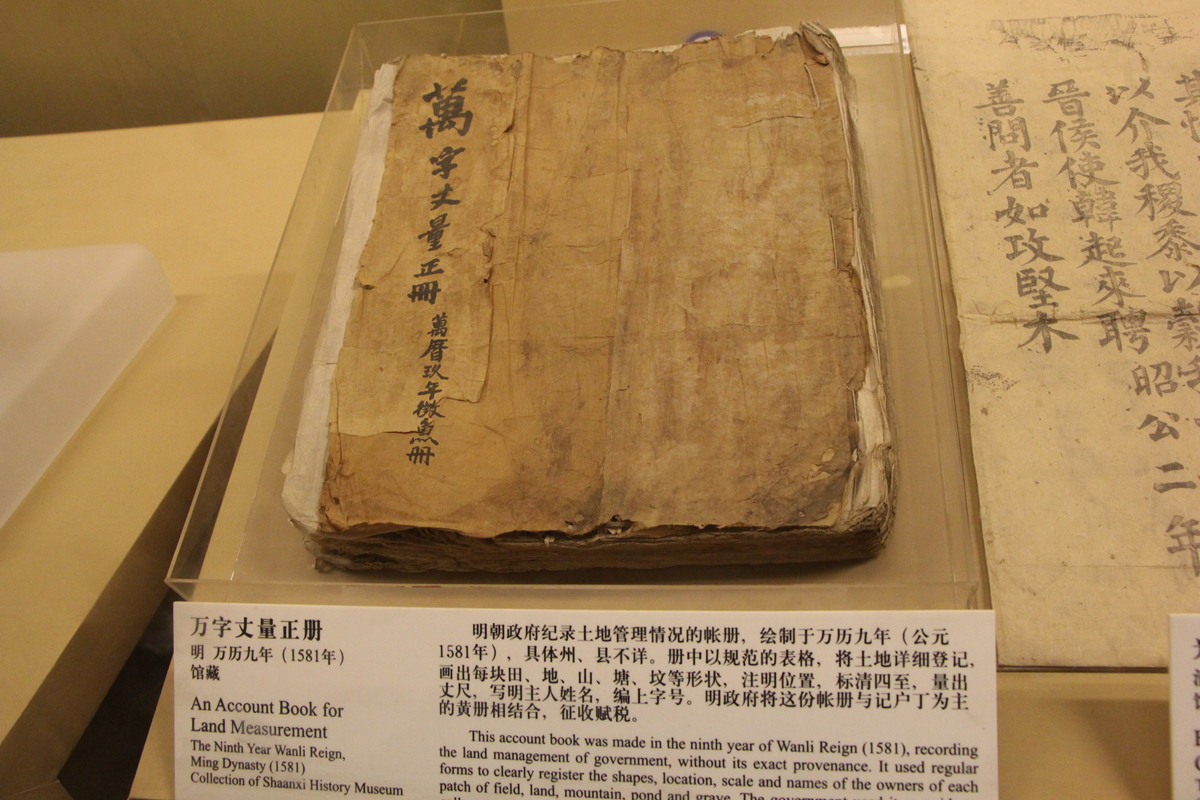 萬字丈量正册
萬厯玖年微魚册
以介我稷黍以穀我
晉侯使韓起來聘昭公二年
善問者如攻堅木
万字丈量正册
明 万历九年（1581年）
馆藏
An Account Book for
Land Measurement
The Ninth Year Wanli Reign,
Ming Dynasty (1581)
Collection of Shaanxi History Museum
明朝政府纪录土地管理情况的帐册，绘制于万历九年（公元
1581年），具体州、县不详。册中以规范的表格，将土地详细登记，
画出每块田、地、山、塘、坟等形状，注明位置，标清四至，量出
丈尺，写明主人姓名，编上字号。明政府将这份帐册与记户丁为主
的黄册相结合，征收赋税。
This account book was made in the ninth year of Wanli Reign (1581), recording
the land management of government, without its exact provenance. It used regular
forms to clearly register the shapes, location, scale and names of the owners of each
patch of field, land, mountain, pond and grave. The government